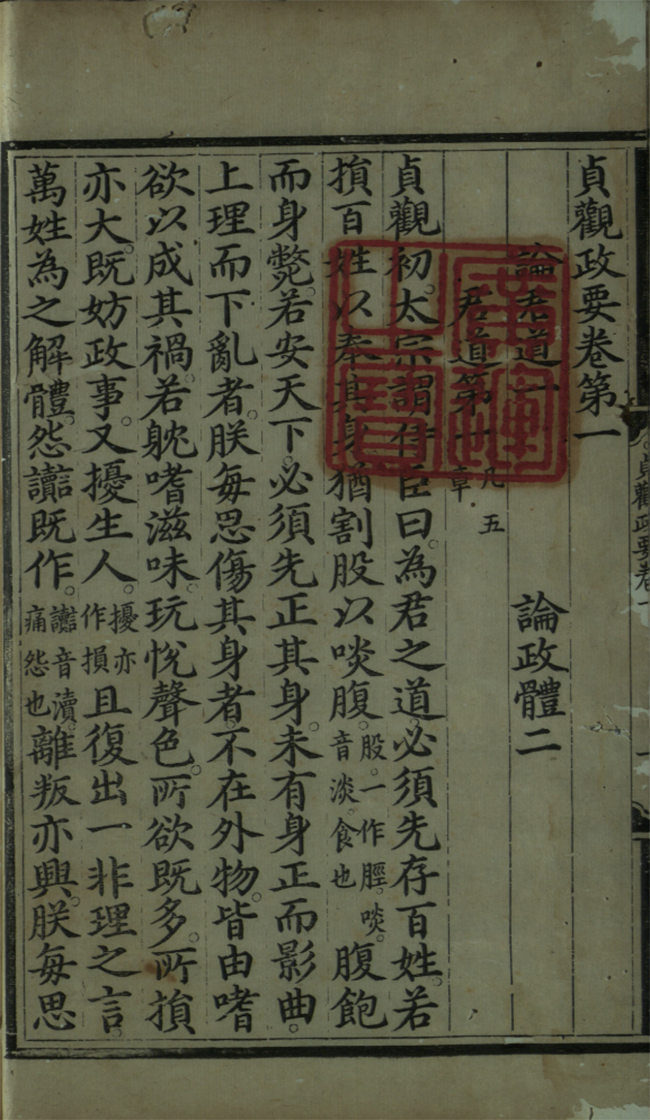 貞觀政要卷第一
論君道一 論政體二
君道第一 凡五章
貞觀初。太宗謂侍臣曰。為君之道。必須先存百姓。若
損百姓以奉其身。猶割股以啖腹。股。一作脛。啖。音淡。食也 腹飽
而身斃。若安天下。必須先正其身。未有身正而影曲。
上理而下亂者。朕每思傷其身者。不在外物。皆由嗜
欲以成其禍。若躭嗜滋味。玩悅聲色。所欲既多。所損
亦大。既妨政事。又擾生人。擾亦作損 且復出一非理之言。
萬姓為之解體。怨讟既作。讟音瀆。痛怨也 離叛亦興。朕每思
貞觀政要卷一